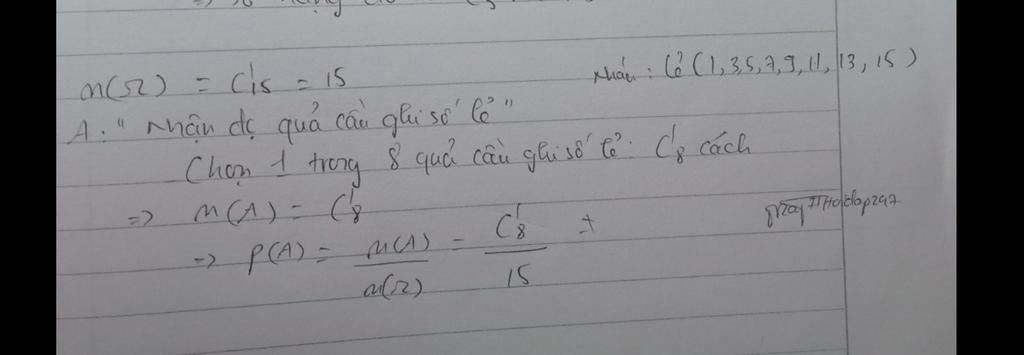 n(Ω) = C¹15 = 15
Nháp: Lẻ (1,3,5,7,9,11,13,15)
A: "Nhận đc quả cầu ghi số lẻ"
Chọn 1 trong 8 quả cầu ghi số lẻ: C¹8 cách
=> n(A) = C¹8
=> P(A) = n(A)/n(Ω) = C¹8/15